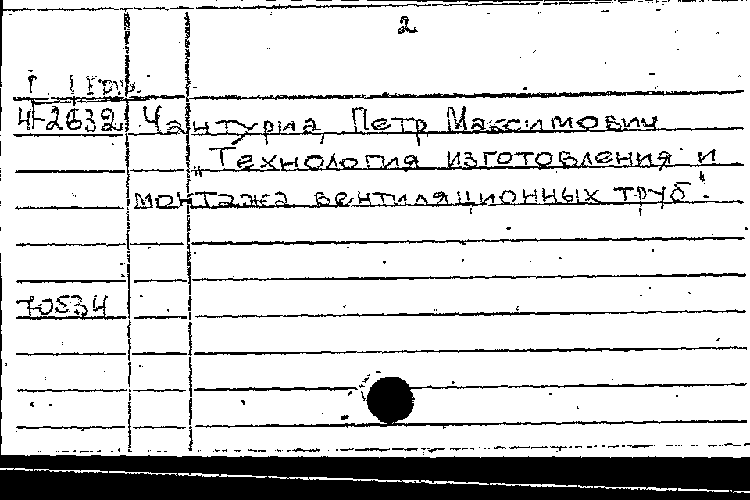 2
Ч-2632 Чантуриа, Петр Максимович
„Технология изготовления и
монтажа вентиляционных труб".
70534